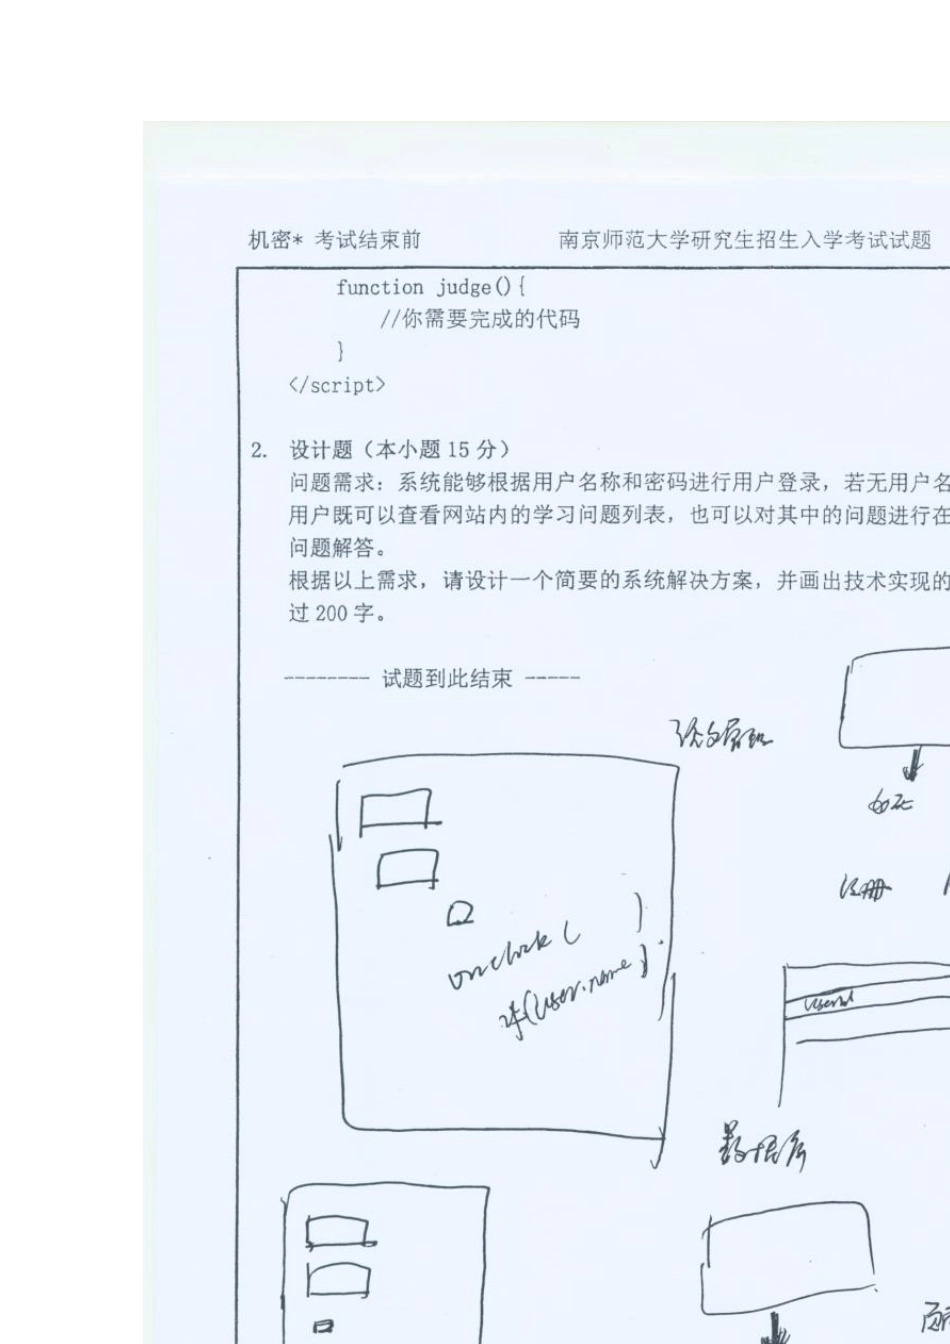 机密* 考试结束前 南京师范大学研究生招生入学考试试题
function judge(){
//你需要完成的代码
}
</script>
2. 设计题（本小题 15 分）
问题需求：系统能够根据用户名称和密码进行用户登录，若无用户名
用户既可以查看网站内的学习问题列表，也可以对其中的问题进行在
问题解答。
根据以上需求，请设计一个简要的系统解决方案，并画出技术实现的
过 200 字。
-------- 试题到此结束 -----
注册
onclock (          )
if(user.name)
userid
数据库